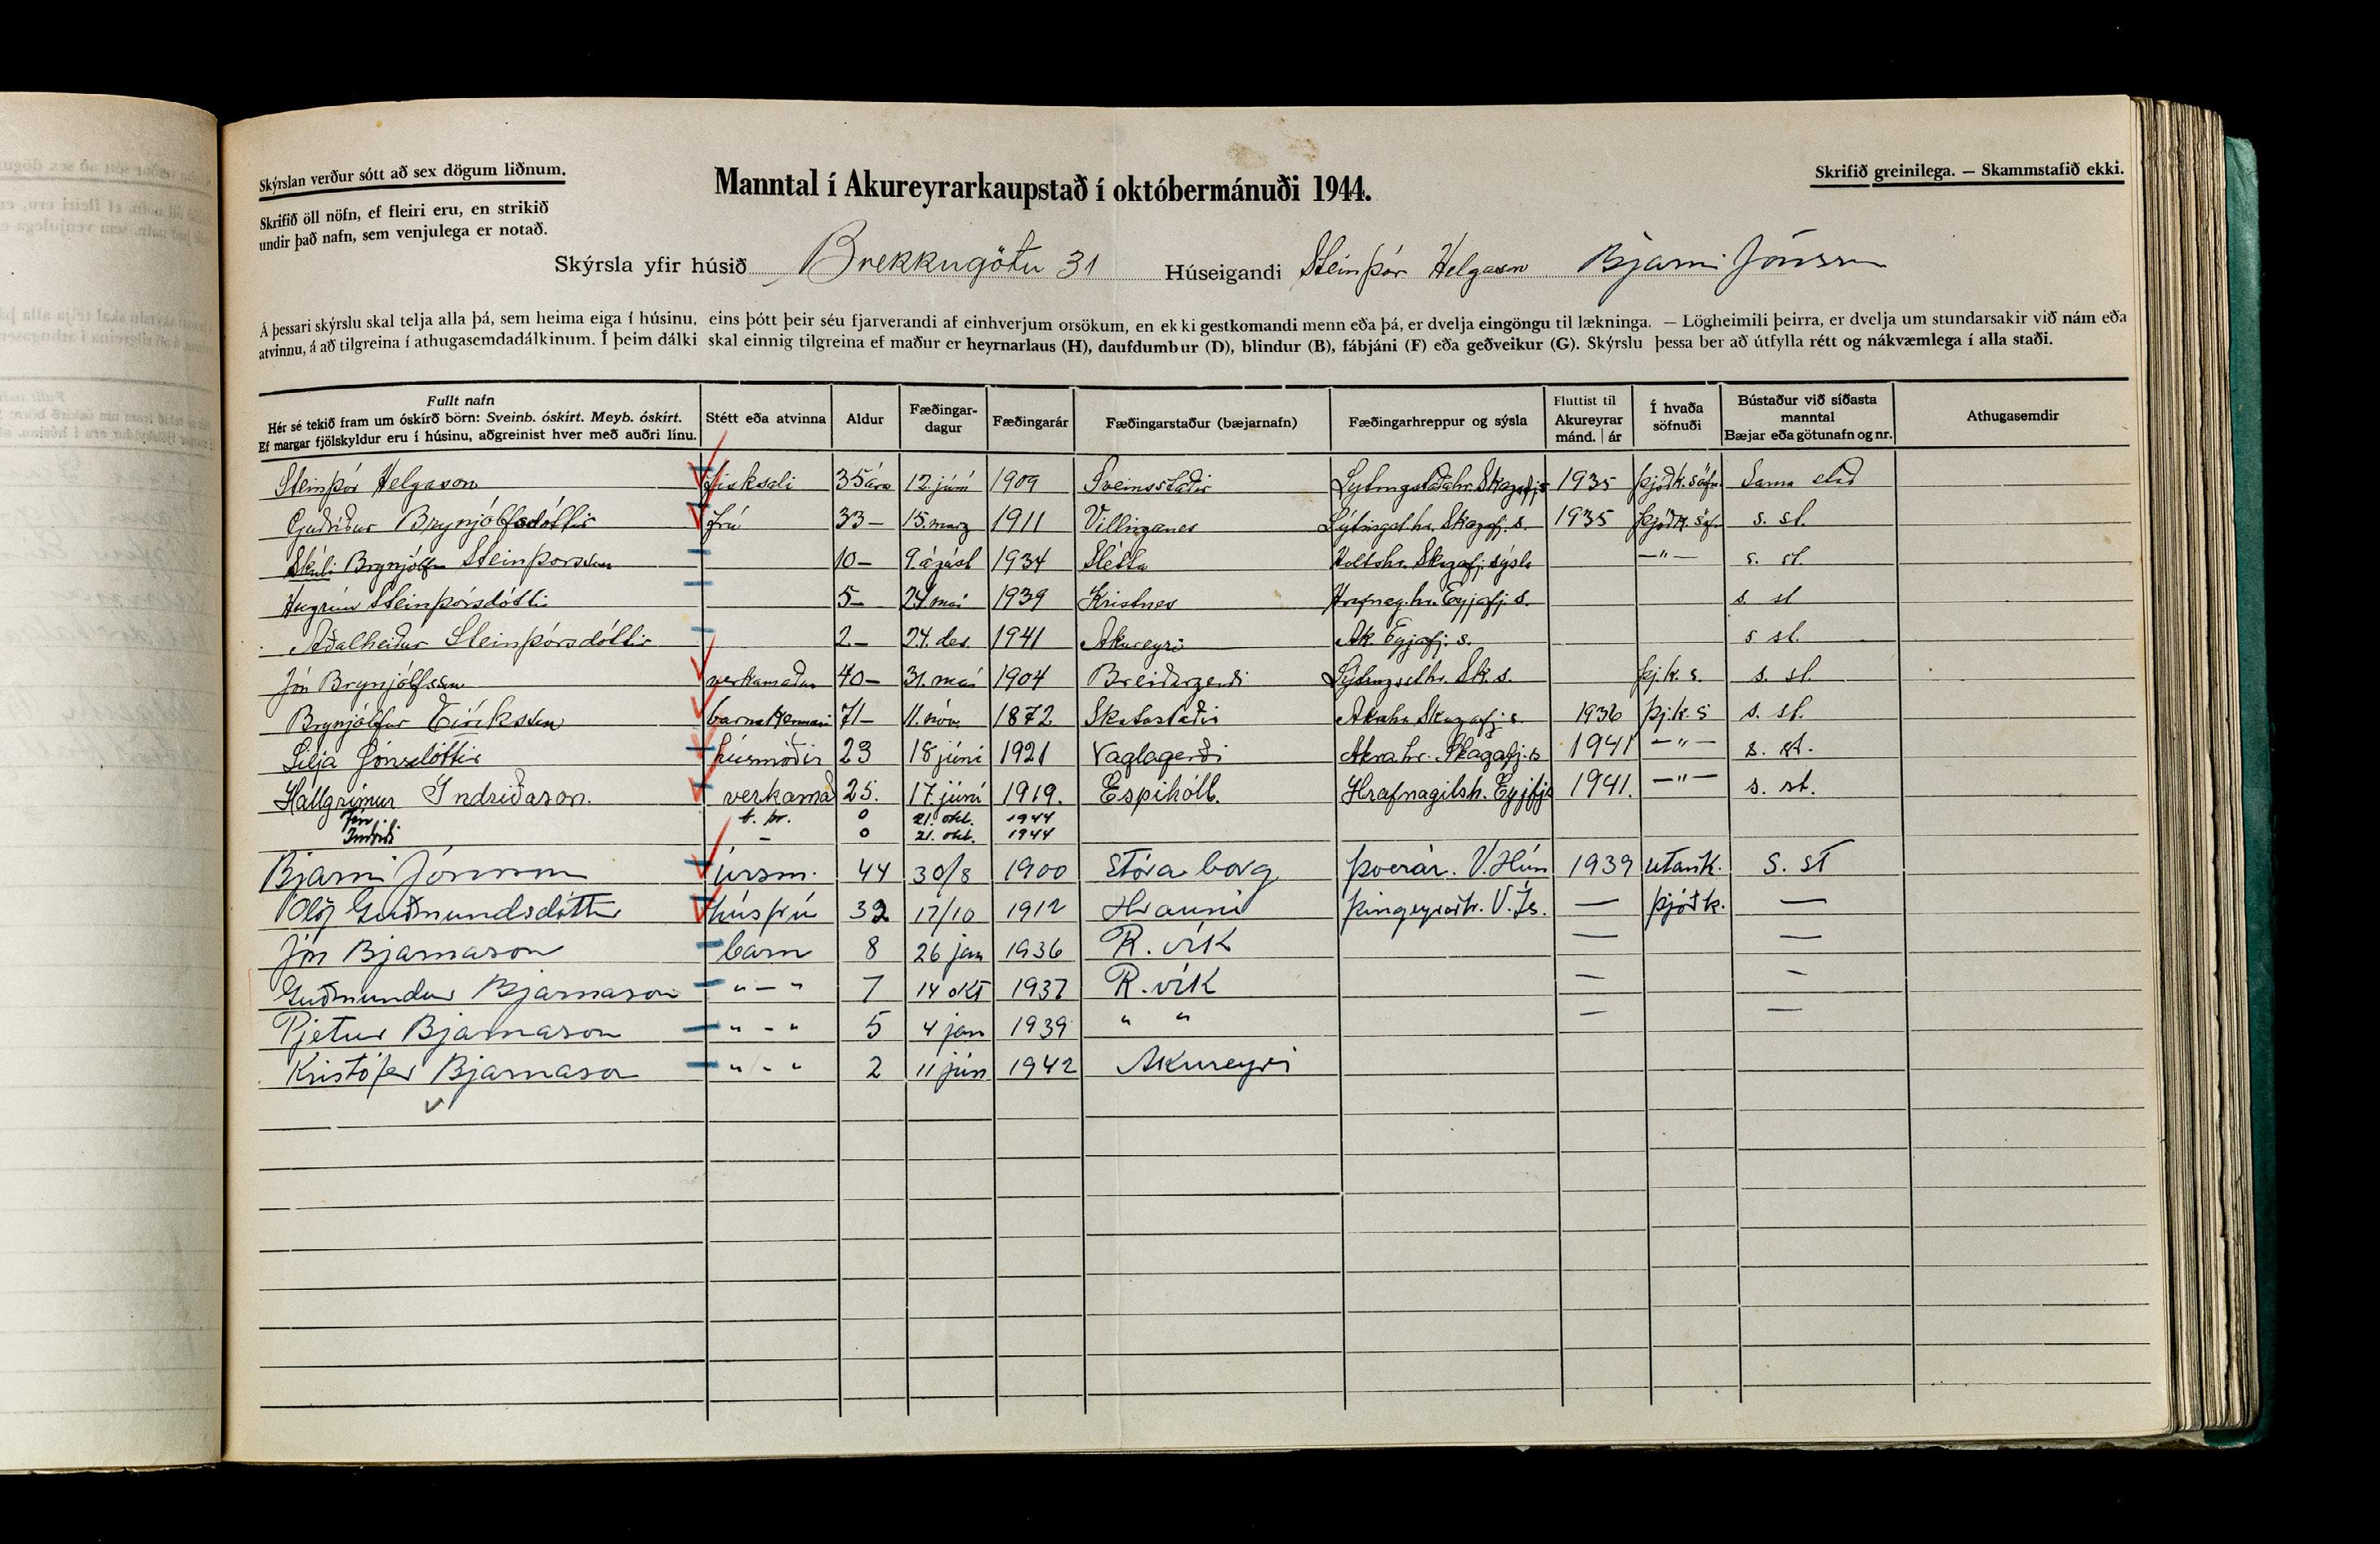 Skýrslan verður sótt að sex dögum liðnum.
Manntal í Akureyrarkaupstað í októbermánuði 1944.
Skrifið greinilega. — Skammstafið ekki.
Skrifið öll nöfn, ef fleiri eru, en strikið
undir það nafn, sem venjulega er notað.
Skýrsla yfir húsið Brekkugötu 31 Húseigandi Steinþór Helgason Bjarni Jónsson
Á þessari skýrslu skal telja alla þá, sem heima eiga í húsinu, eins þótt þeir séu fjarverandi af einhverjum orsökum, en ekki gestkomandi menn eða þá, er dvelja eingöngu til lækninga. — Lögheimili þeirra, er dvelja um stundarsakir við nám eða
atvinnu, á að tilgreina í athugasemdadálkinum. Í þeim dálki skal einnig tilgreina ef maður er heyrnarlaus (H), daufdumbur (D), blindur (B), fábjáni (F) eða geðveikur (G). Skýrslu þessa ber að útfylla rétt og nákvæmlega í alla staði.
Fullt nafn
Hér sé tekið fram um óskírð börn: Sveinb. óskírt. Meyb. óskírt.
Ef margar fjölskyldur eru í húsinu, aðgreinist hver með auðri línu.
Stétt eða atvinna
Aldur
Fæðingar-
dagur
Fæðingarár
Fæðingarstaður (bæjarnafn)
Fæðingarhreppur og sýsla
Fluttist til
Akureyrar
mánd. | ár
Í hvaða
söfnuði
Bústaður við síðasta
manntal
Bæjar eða götunafn og nr.
Athugasemdir
Steinþór Helgason fisksali 35 ára 12. júní 1909 Sveinsstaðir Lýtingsstaðahr. Skagafj.s 1935 þjóðk. söfn. Sama stað
Guðríður Brynjólfsdóttir frú 33 — 15. marz 1911 Villinganes Lýtingst.hr. Skagafj. s. 1935 þjóðk. söf. s. st.
Skúli Brynjólfur Steinþórsson 10 — 9. ágúst 1934 Slétta Holtshr. Skagafj. sýsla — " — s. st.
Hugrún Steinþórsdóttir 5 — 24. maí 1939 Kristnes Hrafnag.hr. Eyjafj. s. s. st
Aðalheiður Steinþórsdóttir 2 — 24. des. 1941 Akureyri Ak. Eyjafj. s. s st.
Jón Brynjólfsson verkamaður 40 — 31. maí 1904 Breiðargerði Lýtingssthr. Sk. s. þj. k. s. s. st.
Brynjólfur Eiríksson barnakennari 71 — 11. nóv. 1872 Skatastaðir Akrahr Skagafj. s. 1936 þj. k. s s. st.
Lilja Jónsdóttir húsmóðir 23 18 júní 1921 Vaglagerði Akra.hr. Skagafj.s 1941 — " — s. st.
Hallgrímur Indriðason. verkama 25. 17. júní 1919. Espihóll. Hrafnagilsh. Eyjfjs 1941. — " — s. st.
Jón t. br. 0 21. okt. 1944
Indriði — 0 21. okt. 1944
Bjarni Jónsson úrsm. 44 30/8 1900 Stóra borg Þverár. V. Hún 1939 utank. S. st
Ólöf Guðmundsdóttir húsfrú 32 17/10 1912 Hrauni Þingeyrarhr. V. Ís. — þjóðk. —
Jón Bjarnason barn 8 26 jan 1936 R. vík — —
Guðmundur Bjarnason " — " 7 14 okt 1937 R. vík — —
Pjetur Bjarnason " - " 5 4 jan 1939 " " — —
Kristófer Bjarnason " - " 2 11 jún 1942 Akureyri